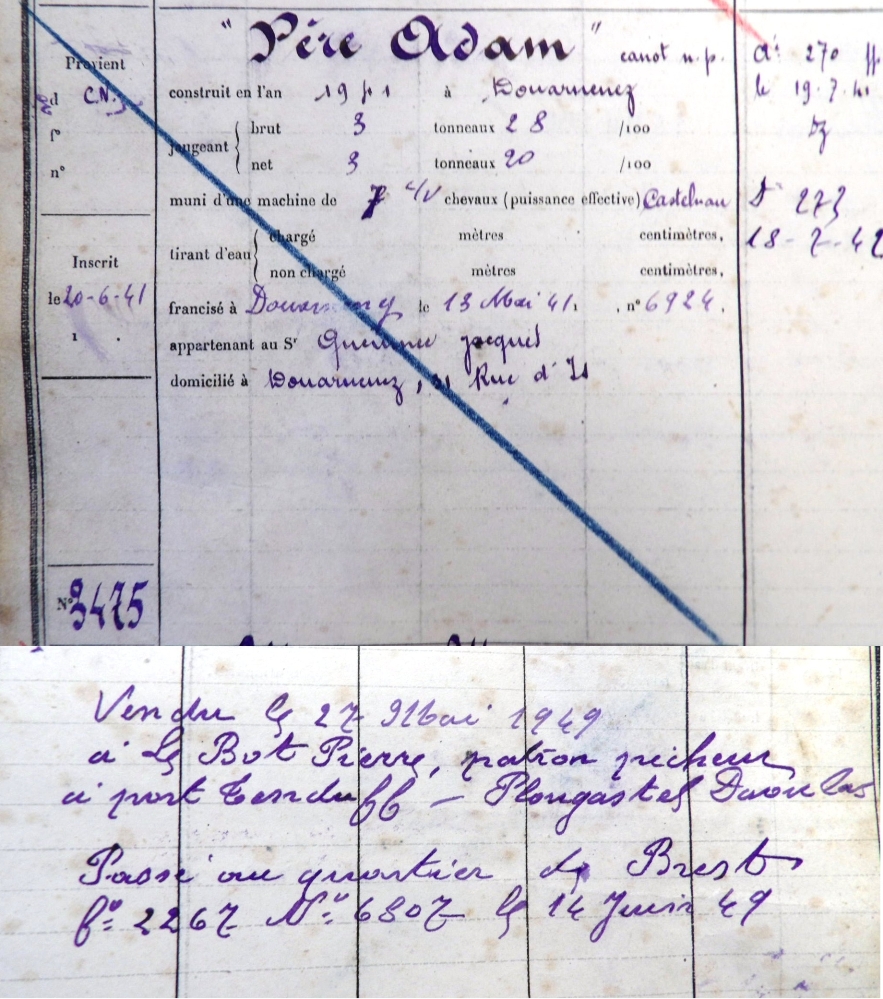 "Père Adam" canot n.p.
Provient
d C.N.
f°
n°
construit en l'an 1941 à Douarnenez
jaugeant { brut 3 tonneaux 28 /100
net 3 tonneaux 20 /100
muni d'une machine de 7 c/v chevaux (puissance effective) Castelnau
tirant d'eau { chargé mètres centimètres,
non chargé mètres centimètres,
Inscrit
le 20-6-41
francisé à Douarnenez le 13 Mai 41, n° 6924.
appartenant au Sr Jacques
domicilié à Douarnenez, Rue d'Is
N° 3475
270 ff
le 19.7.41
Dz
D 273
18-7-42
Vendu le 27 Mai 1949
à Le Bot Pierre, patron pêcheur
à port Tenduff – Plougastel Daoulas
Passé au quartier de Brest
f° 2267 N° 6807 le 14 Juin 49